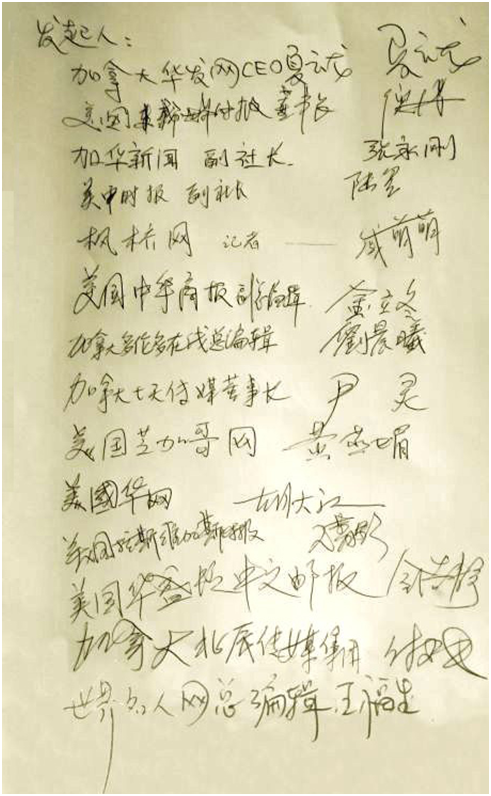 发起人：
加拿大华发网CEO夏云龙 夏云龙
美国 时报 董事长
加华新闻 副社长 张永刚
美中时报 副社长 陆星
枫桥网 记者 —— 戚萌萌
美国中华商报副总编辑 金立冬
加拿大多伦多在线总编辑 劉晨曦
加拿大七天传媒董事长 尹灵
美国芝加哥网 黄燕娟
美國华网 胡大江
美国拉斯维加斯时报
美国华盛顿中文邮报
加拿大北辰传媒集团
世界名人网总编辑 王福生